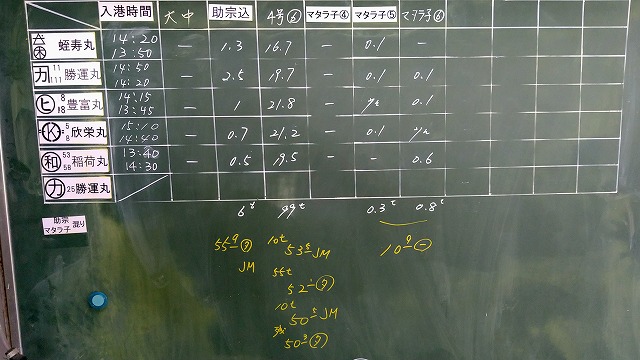 入港時間 大中 助宗込 4号⑥ マタラ子④ マタラ子⑤ マタラ子⑥
蛭寿丸 14:20 13:50 — 1.3 16.7 — 0.1 —
カ 11 111 勝運丸 14:50 14:20 — 2.5 19.7 — 0.1 0.1
ヒ 8 18 豊富丸 14:15 13:45 — 1 21.8 — 0.1
K 5 8 欣栄丸 15:10 14:40 — 0.7 21.2 — 0.1
和 53 58 稲荷丸 13:40 14:30 — 0.5 19.5 — - 0.6
カ 25 勝運丸
6t 99t 0.3t 0.8t
助宗
マタラ子 混り
JM
10t
53 JM
55t
52
10t
50 JM
残
50